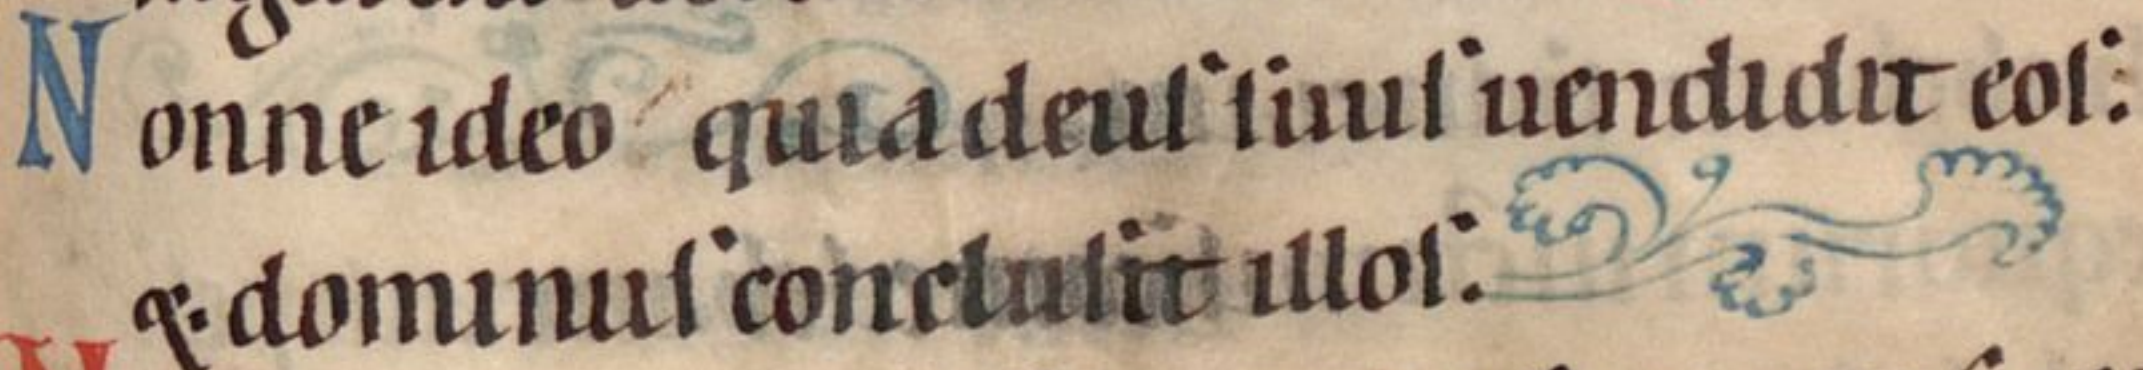 Nonne ideo quia deuſ ſuuſ uendidit eoſ:
& dominuſ concluſit illoſ.